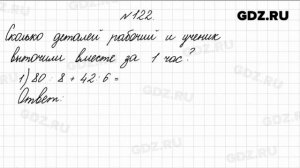 GDZ.RU
№122.
Сколько деталей рабочий и ученик
выточили вместе за 1 час?
1) 80 : 8 + 42 : 6 =
Ответ:
GDZ.RU